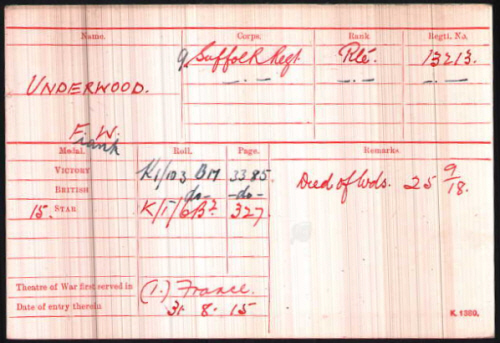 Name. Corps. Rank Regtl. No.
9 Suffolk Regt Pte. 13213.
UNDERWOOD. —.— —.— —.—
F. W.
Frank
Medal. Roll. Page. Remarks.
VICTORY K1/103 B17 3385. Died of Wds. 25 9/18.
BRITISH -do- -do-
15. STAR K/1/6B2 327
Theatre of War first served in (1.) France.
Date of entry therein 31. 8. 15
K. 1380.